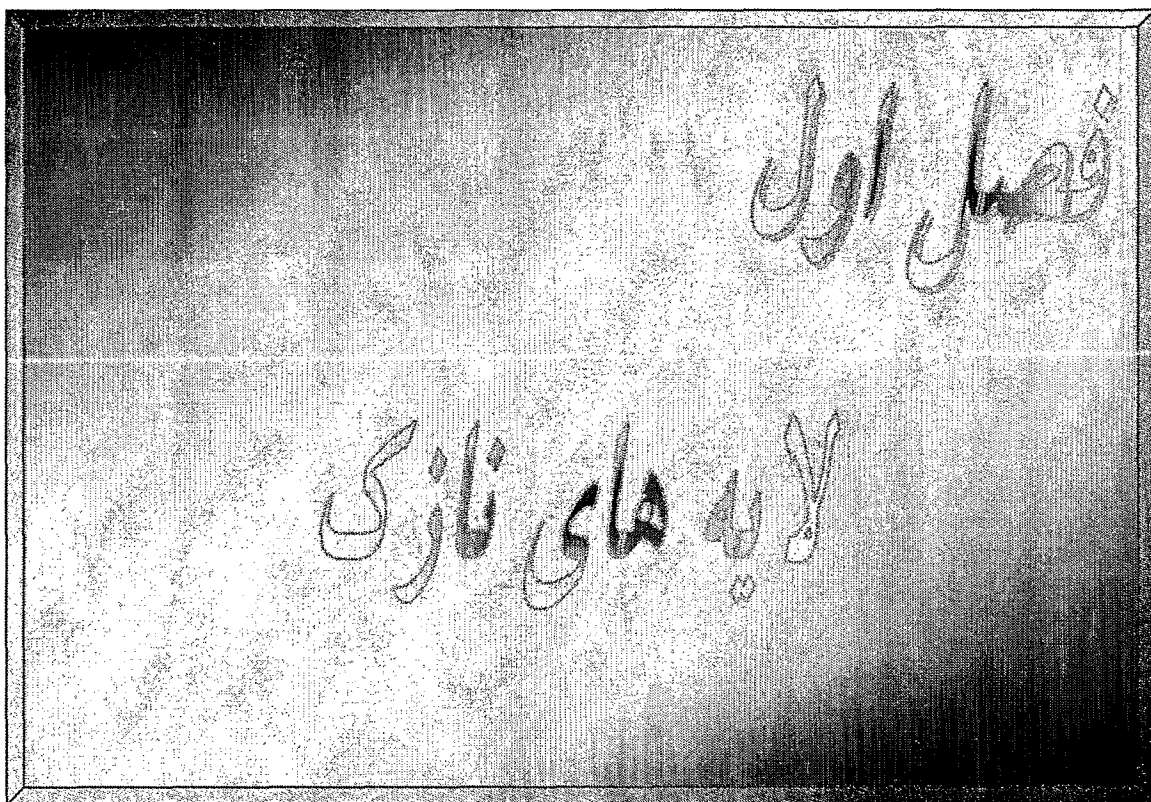 فصل اول
لایه های نازک